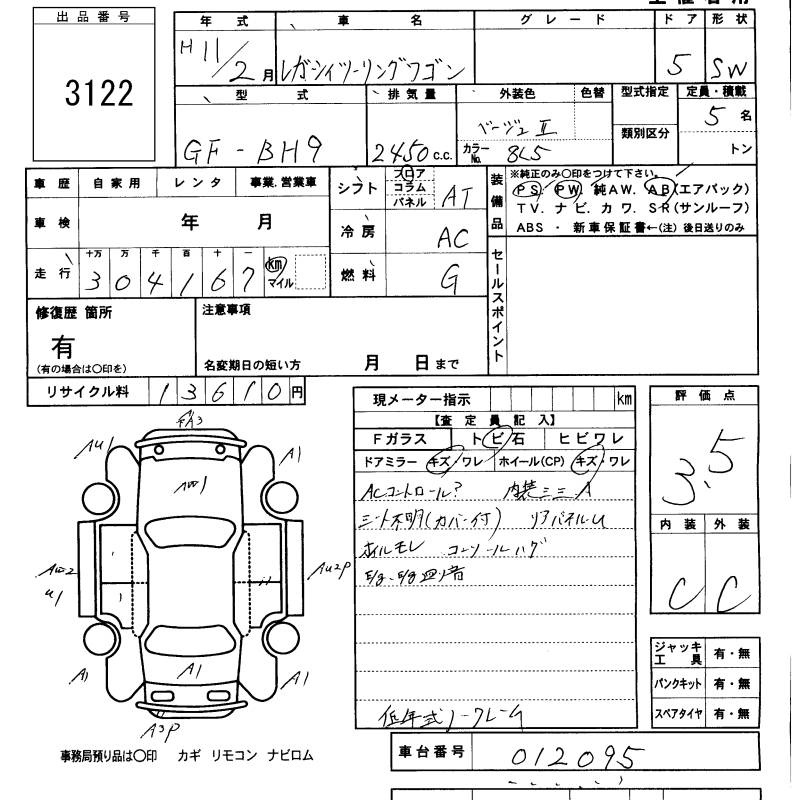 出品番号
3122
年式 車名 グレード ドア 形状
H 11/2月 レガシィツーリングワゴン 5 SW
型式 排気量 外装色 色替 型式指定 定員・積載
GF-BH9 2450 c.c. ベージュII 類別区分 5名
カラーNo. 8L5 トン
車歴 自家用 レンタ 事業,営業車
シフト フロア コラム パネル AT
装備品 ※純正のみ〇印をつけて下さい。
PS PW 純AW. AB(エアバック)
TV. ナビ. カワ. SR(サンルーフ)
ABS ・ 新車保証書←(注)後日送りのみ
車検 年 月
冷房 AC
走行 十万 万 千 百 十 一 km マイル
304167
燃料 G
セールスポイント
修復歴 箇所
有
(有の場合は〇印を)
注意事項
名変期日の短い方 月 日まで
リサイクル料 13610円
現メーター指示 km
評価点
3.5
【査定員記入】
Fガラス トビ石 ヒビワレ
ドアミラー キズ・ワレ ホイール(CP) キズ・ワレ
ACコントロール? 内装シミA
シート不明(カバー付) リアパネルU
オイルモレ コンソールハゲ
低年式ノークレーム
内装 外装
C C
A1
AW1
A1
A1
A1
A1
U1
A3P
ジャッキ工具 有・無
パンクキット 有・無
スペアタイヤ 有・無
事務局預り品は〇印 カギ リモコン ナビロム
車台番号 012095